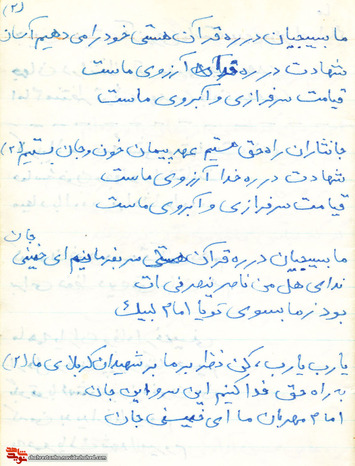 (۲)
ما بسیجیان در ره قرآن هستی خود را می دهیم آسان
شهادت در ره خدا آرزوی ماست
قیامت سرفرازی و آبروی ماست
جانثاران راه حق هستیم عهد پیمان خون و جان بستیم (۲)
شهادت در ره خدا آرزوی ماست
قیامت سرفرازی و آبروی ماست
جان
ما بسیجیان در ره قرآن هستی سر بفرمانیم ای خمینی
ندای هل من ناصر ینصرنی ات
بود ز ما بسوی تو یا امام لبیک
یارب یارب، کن نظر بر ما بر شهیدان کربلای ما (۲)
به راه حق فدا کنیم این سر و این جان
امام مهربان ما ای خمینی جان
shohreetanha.navideshahed.com